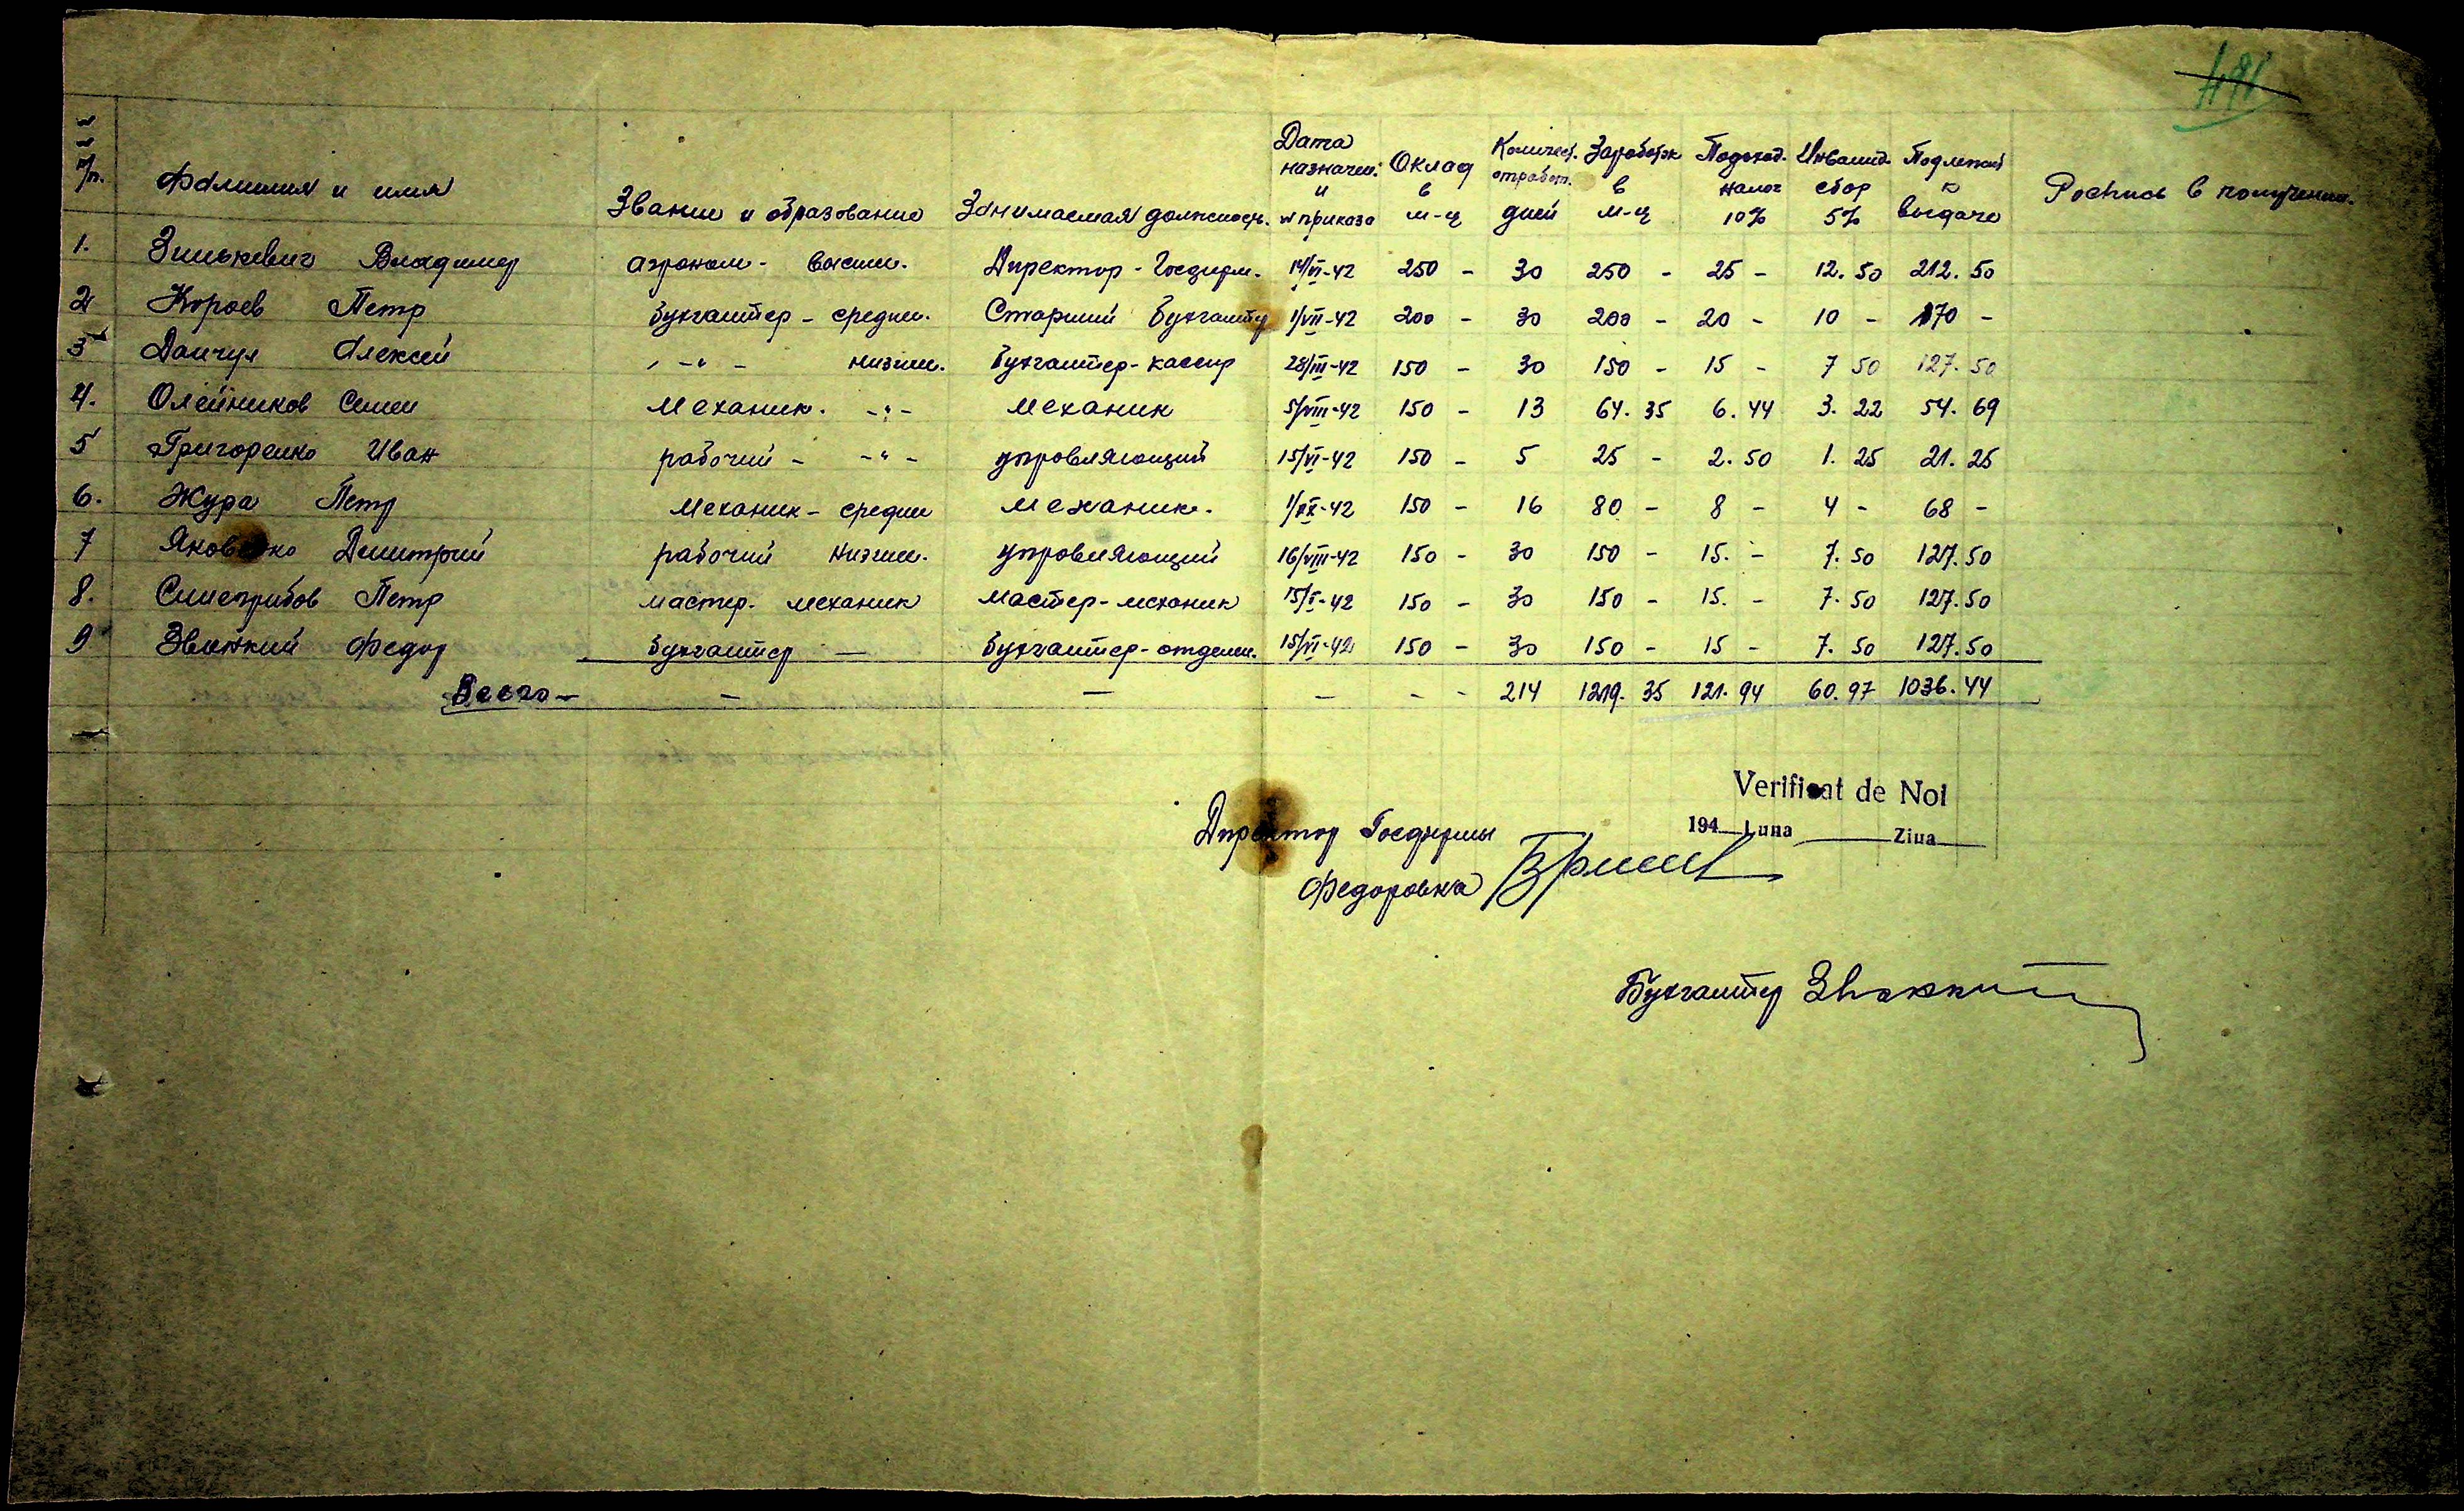 481
№№ п/п. Фамилия и имя Звание и образование Занимаемая должность. Дата назначен. и № приказа Оклад в м-ц Количест. отработ. дней Заработок в м-ц Подоход. налог 10% Инвалид. сбор 5% Подлежит к выдаче Роспись в получении.
1. Зинькевич Владимир агроном - высш. Директор - Госферм. 14/VI-42 250 - 30 250 - 25 - 12. 50 212. 50
2 Петр бухгалтер - средн. Старший бухгалтер 1/VII-42 200 - 30 200 - 20 - 10 - 170 -
3 Алексей - " - низш. бухгалтер - кассир 28/III-42 150 - 30 150 - 15 - 7 50 127. 50
4. Олейников Семен механик. - " - механик 5/VIII-42 150 - 13 64. 35 6. 44 3. 22 54. 69
5 Григоренко Иван рабочий - - " - управляющий 15/VI-42 150 - 5 25 - 2. 50 1. 25 21. 25
6. Жура Петр механик - средн механик. 150 - 16 80 - 8 - 4 - 68 -
7 Дмитрий рабочий низш. управляющий 16/VIII-42 150 - 30 150 - 15. - 7. 50 127. 50
8. Петр мастер. механик мастер - механик 150 - 30 150 - 15. - 7. 50 127. 50
9 Федор бухгалтер — бухгалтер - отделен. 15/VI-42 150 - 30 150 - 15 - 7. 50 127. 50
Всего — — — — - - 214 1219. 35 121. 94 60. 97 1036. 44
Verificat de Noi
194 Luna Ziua
Директор Госфермы
Федоровка
Бухгалтер